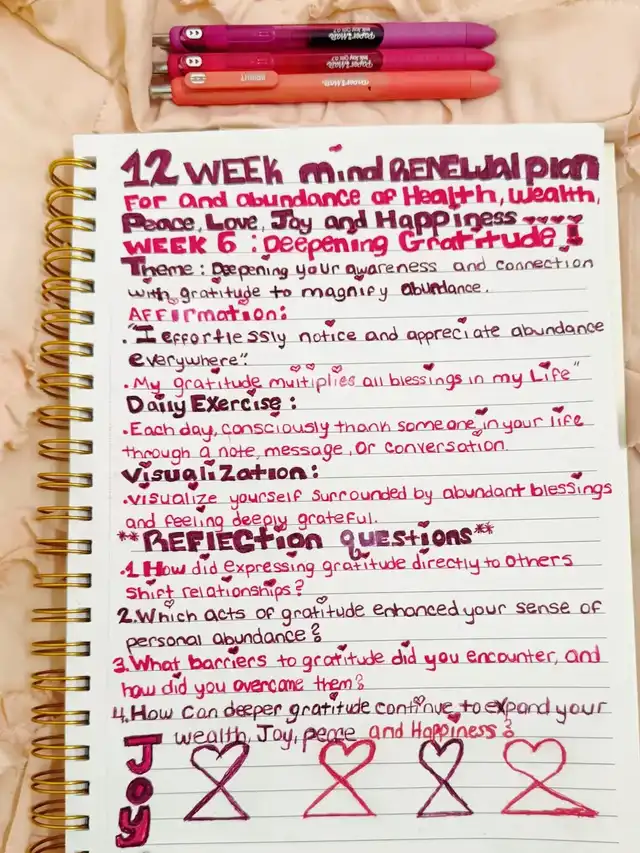 PaperMate InkJoy Gel 0.7
PaperMate InkJoy Gel 0.7
PaperMate
12 WEEK mind RENEWAL plan
For and abundance of Health, wealth,
Peace, Love, Joy and Happiness
WEEK 6 : Deepening Gratitude !
Theme : Deepening your awareness and connection
with gratitude to magnify abundance.
AFFirmation:
. "I effortlessly notice and appreciate abundance
everywhere".
. My gratitude multiplies all blessings in my Life"
Daily EXercise :
. Each day, consciously thank someone in your life
through a note, message, Or conversation.
VisualiZation :
. visualize yourself surrounded by abundant blessings
and feeling deeply grateful.
**REFLECtion questions**
.1 How did expressing gratitude directly to others
shift relationships?
2. Which acts of gratitude enhanced your sense of
personal abundance?
3. What barriers to gratitude did you encounter, and
how did you overcome them?
4. How can deeper gratitude continue to expand your
wealth, Joy, peace and Happiness?
JOY